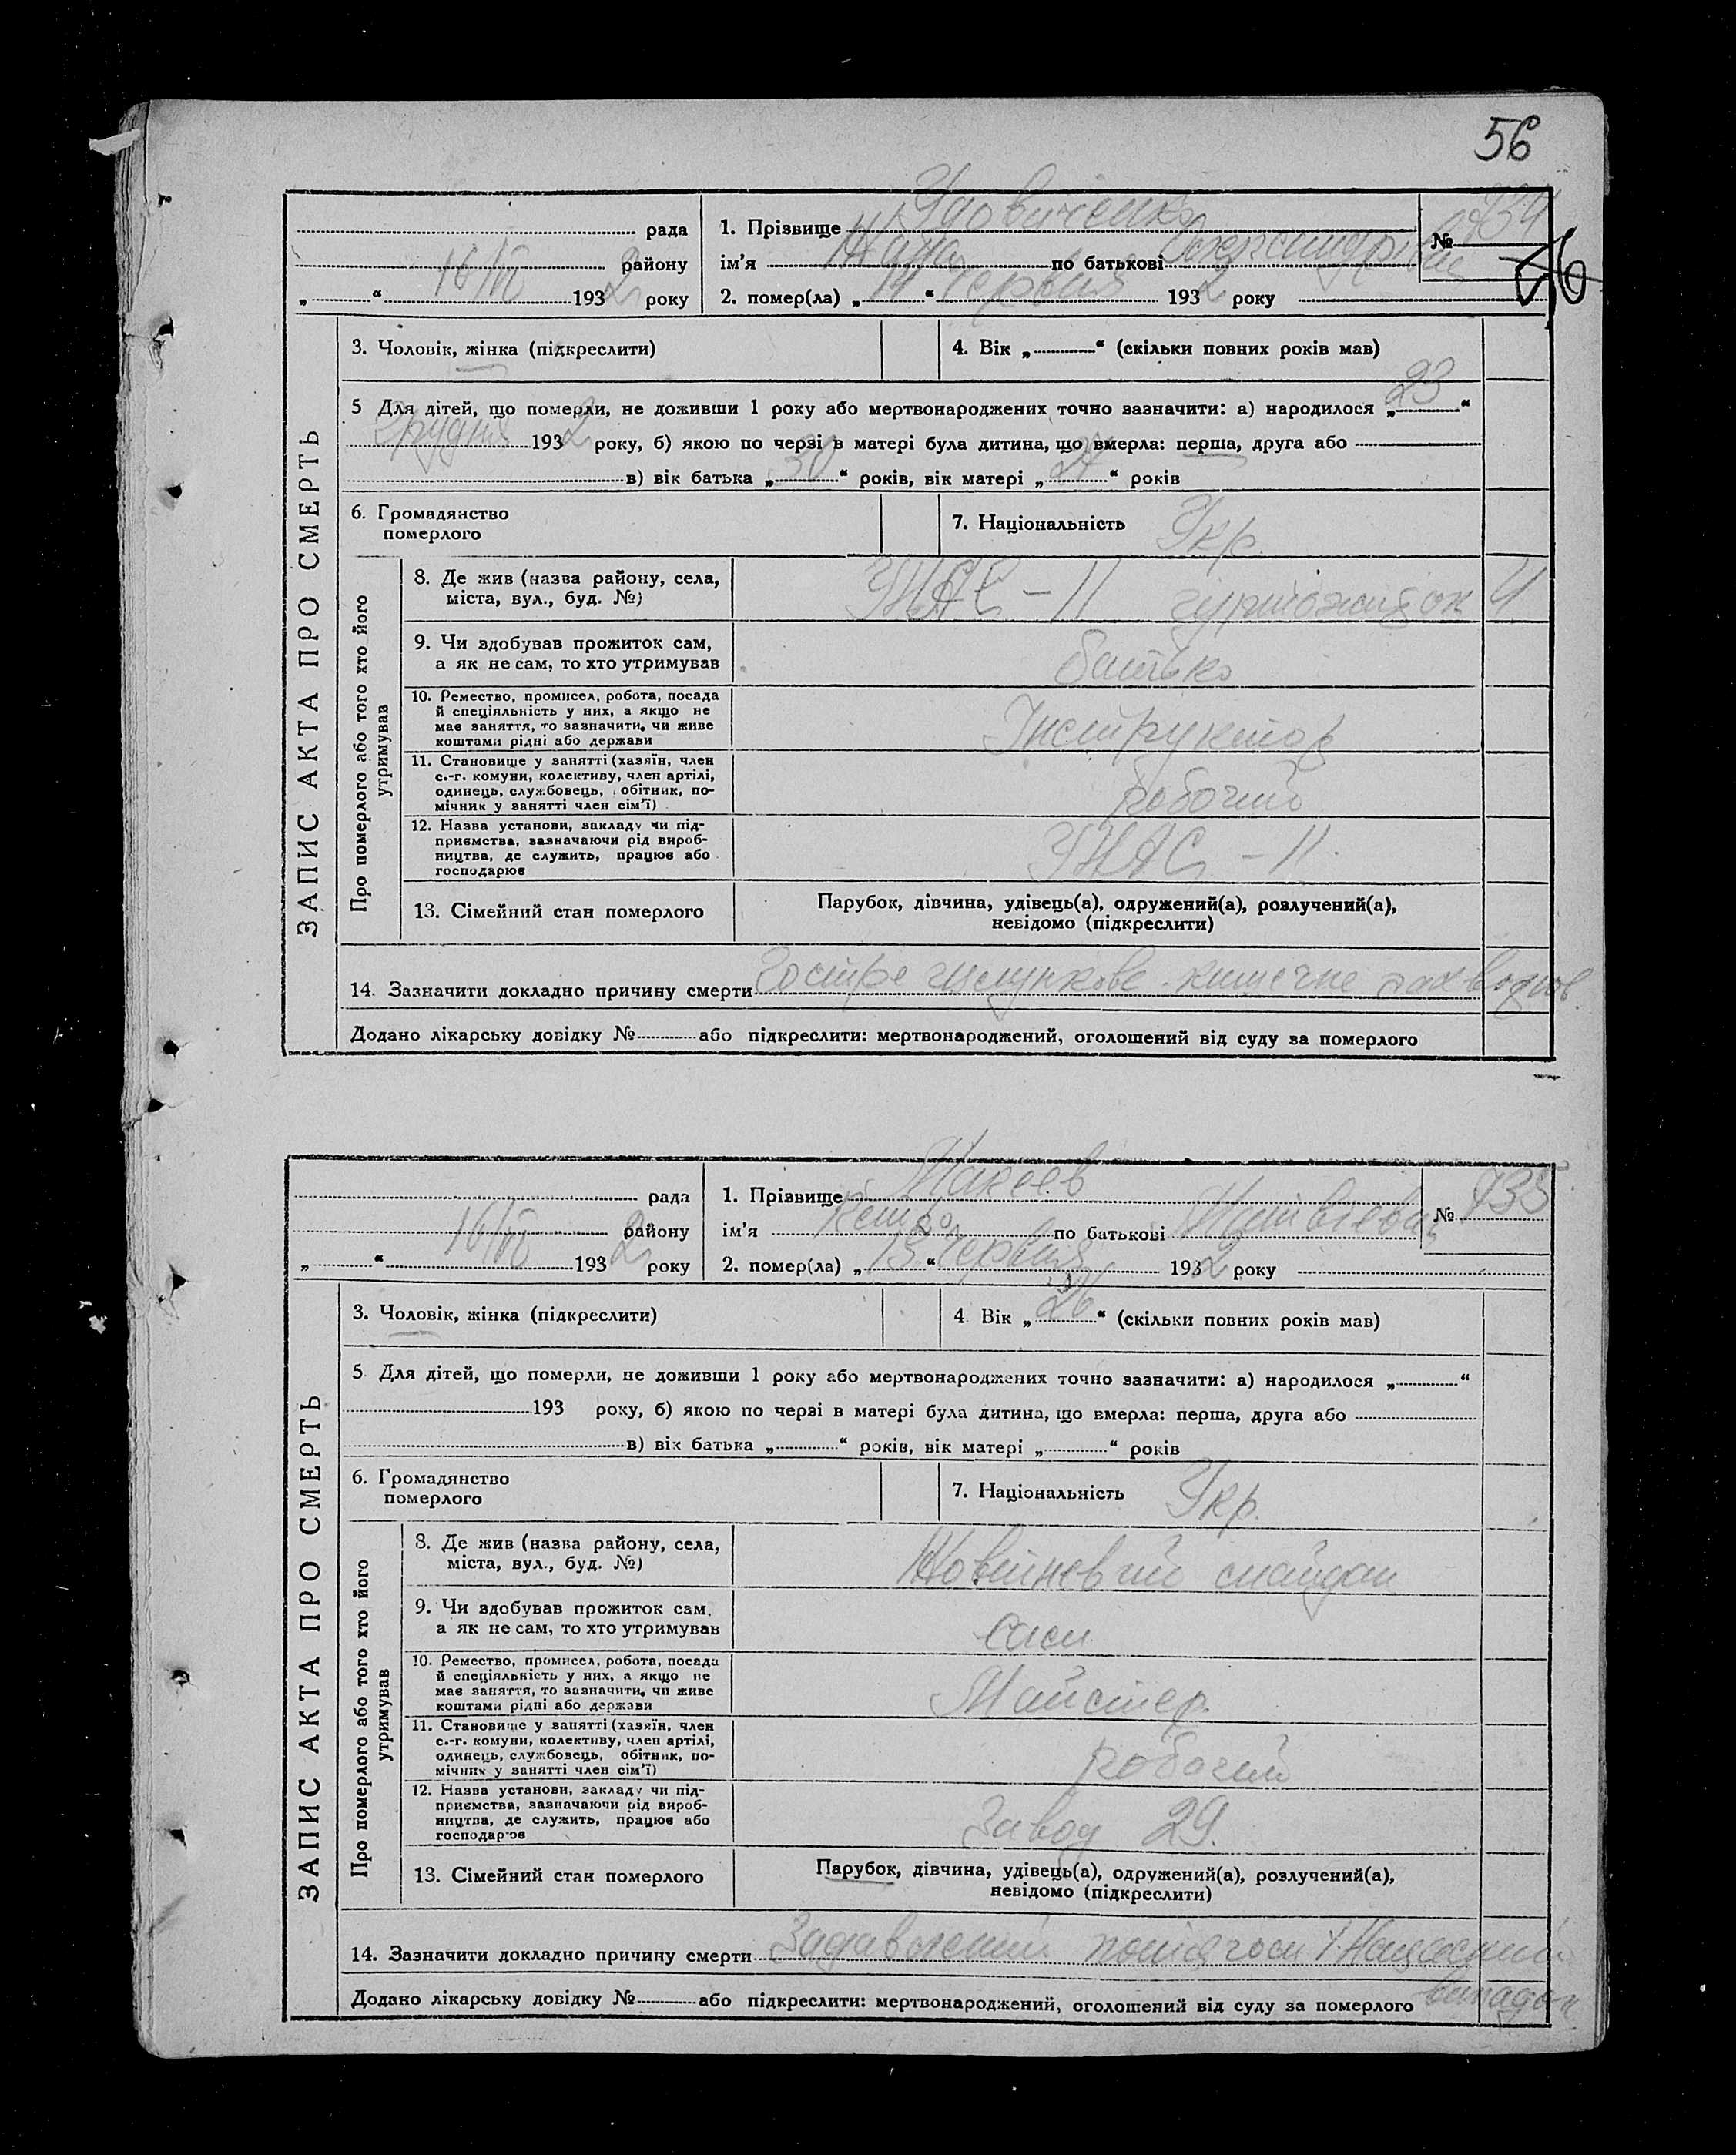 56
рада
району
16/VI 1932 року
1. Прізвище Удовиченко
ім'я по батькові
2. помер(ла) „14“ Червня 1932 року
№ 734
3. Чоловік, жінка (підкреслити)
4. Вік „ “ (скільки повних років мав)
5 Для дітей, що померли, не доживши 1 року або мертвонароджених точно зазначити: а) народилося „23“
Грудня 1932 року, б) якою по черзі в матері була дитина, що вмерла: перша, друга або
в) вік батька „30“ років, вік матері „24“ років
6. Громадянство
померлого
7. Національність Укр.
ЗАПИС АКТА ПРО СМЕРТЬ
Про померлого або того хто його
утримував
8. Де жив (назва району, села,
міста, вул., буд. №)
гуртожиток 4
9. Чи здобував прожиток сам,
а як не сам, то хто утримував
батько
10. Ремество, промисел, робота, посада
й спеціяльність у них, а якщо не
має заняття, то зазначити, чи живе
коштами рідні або держави
Інструктор
11. Становище у занятті (хазяїн, член
с.-г. комуни, колективу, член артілі,
одинець, службовець, обітник, по-
мічник у занятті член сім'ї)
робочий
12. Назва установи, закладу чи під-
приємства, зазначаючи рід вироб-
ництва, де служить, працює або
господарює
13. Сімейний стан померлого
Парубок, дівчина, удівець(а), одружений(а), розлучений(а),
невідомо (підкреслити)
14. Зазначити докладно причину смерти Гостре шлункове-кишечне захворюв.
Додано лікарську довідку № або підкреслити: мертвонароджений, оголошений від суду за померлого
рада
району
16/VI 1932 року
1. Прізвище Макеев
ім'я Петро по батькові Матвієвич
2. помер(ла) „13“ Червня 1932 року
№ 735
3. Чоловік, жінка (підкреслити)
4 Вік „26“ (скільки повних років мав)
5. Для дітей, що померли, не доживши 1 року або мертвонароджених точно зазначити: а) народилося „ “
193 року, б) якою по черзі в матері була дитина, що вмерла: перша, друга або
в) вік батька „ “ років, вік матері „ “ років
6. Громадянство
померлого
7. Національність Укр.
ЗАПИС АКТА ПРО СМЕРТЬ
Про померлого або того хто його
утримував
8. Де жив (назва району, села,
міста, вул., буд. №)
майдан
9. Чи здобував прожиток сам,
а як не сам, то хто утримував
сам
10. Ремество, промисел, робота, посада
й спеціяльність у них, а якщо не
має заняття, то зазначити, чи живе
коштами рідні або держави
Майстер.
11. Становище у занятті (хазяїн, член
с.-г. комуни, колективу, член артілі,
одинець, службовець, обітник, по-
мічник у занятті член сім'ї)
робочий
12. Назва установи, закладу чи під-
приємства, зазначаючи рід вироб-
ництва, де служить, працює або
господарює
Завод 29.
13. Сімейний стан померлого
Парубок, дівчина, удівець(а), одружений(а), розлучений(а),
невідомо (підкреслити)
14. Зазначити докладно причину смерти Задавлений потягом Нещасний
випадок
Додано лікарську довідку № або підкреслити: мертвонароджений, оголошений від суду за померлого